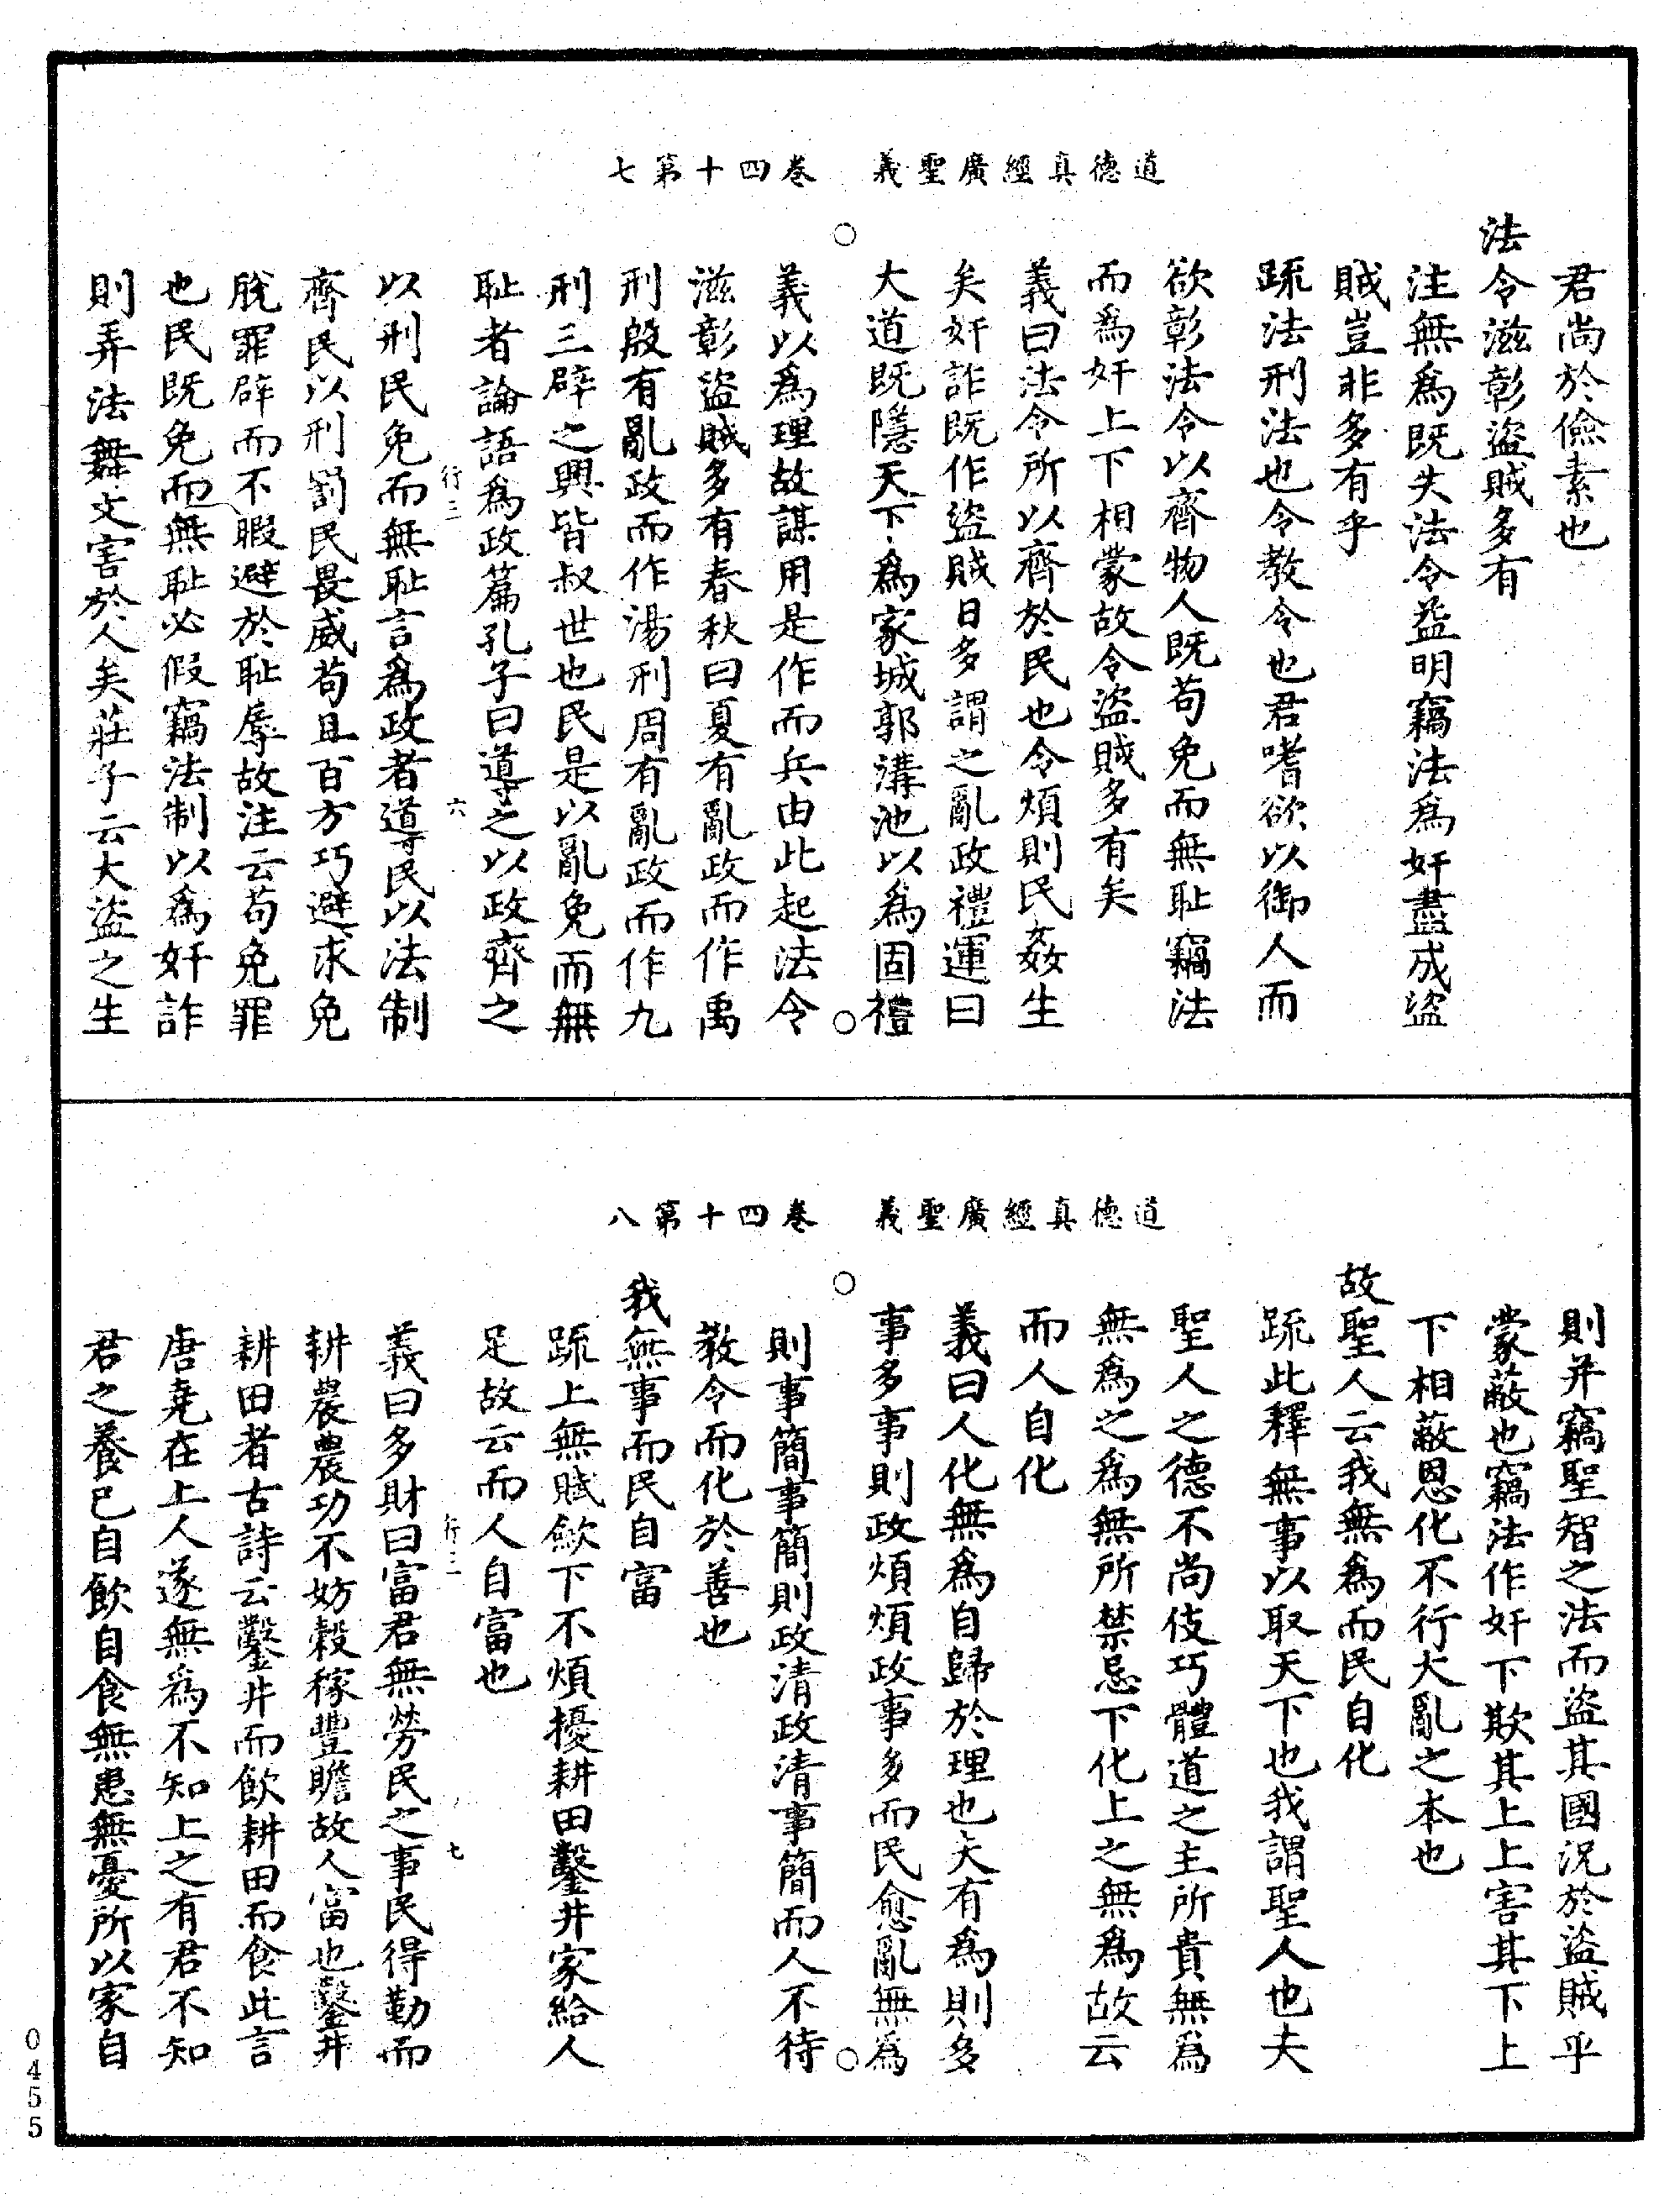 道德真經廣聖義　卷四十第七
君尚於儉素也
法令滋彰盜賊多有
注無爲既失法令益明竊法爲奸盡成盜
賊豈非多有乎
疏法刑法也令教令也君嗜欲以御人而
欲彰法令以齊物人既苟免而無耻竊法
而爲奸上下相蒙故令盜賊多有矣
義曰法令所以齊於民也令煩則民姦生
矣奸詐既作盜賊日多謂之亂政禮運曰
大道既隱天下爲家城郭溝池以爲固禮
義以爲理故謀用是作而兵由此起法令
滋彰盜賊多有春秋曰夏有亂政而作禹
刑殷有亂政而作湯刑周有亂政而作九
刑三辟之興皆叔世也民是以亂免而無
耻者論語爲政篇孔子曰導之以政齊之
行三
六
以刑民免而無耻言爲政者導民以法制
齊民以刑罰民畏威苟且百方巧避求免
脫罪辟而不暇避於耻辱故注云苟免罪
也民既免而無耻必假竊法制以爲奸詐
則弄法舞文害於人矣莊子云大盜之生
道德真經廣聖義　卷四十第八
則并竊聖智之法而盜其國況於盜賊乎
蒙蔽也竊法作奸下欺其上上害其下上
下相蔽恩化不行大亂之本也
故聖人云我無爲而民自化
疏此釋無事以取天下也我謂聖人也夫
聖人之德不尚伎巧體道之主所貴無爲
無爲之爲無所禁忌下化上之無爲故云
而人自化
義曰人化無爲自歸於理也夫有爲則多
事多事則政煩煩政事多而民愈亂無爲
則事簡事簡則政清政清事簡而人不待
教令而化於善也
我無事而民自富
疏上無賦歛下不煩擾耕田鑿井家給人
足故云而人自富也
行三
七
義曰多財曰富君無勞民之事民得勤而
耕農農功不妨穀稼豐贍故人富也鑿井
耕田者古詩云鑿井而飲耕田而食此言
唐堯在上人遂無爲不知上之有君不知
君之養已自飲自食無患無憂所以家自
0455